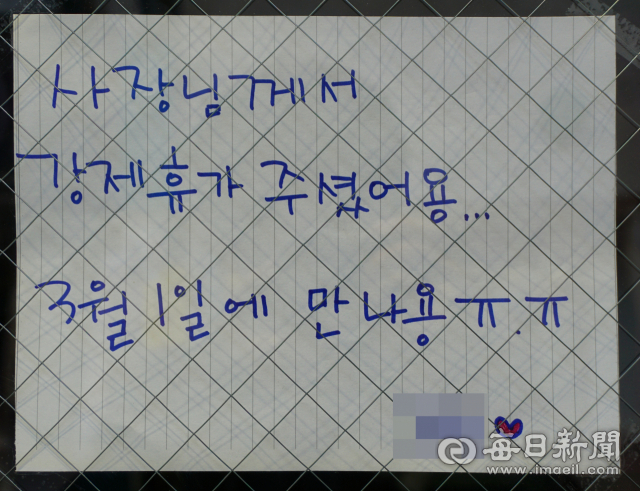 사장님께서
강제휴가 주셨어용...
3월 1일에 만나용 ㅠ.ㅠ
每日新聞
www.imaeil.com